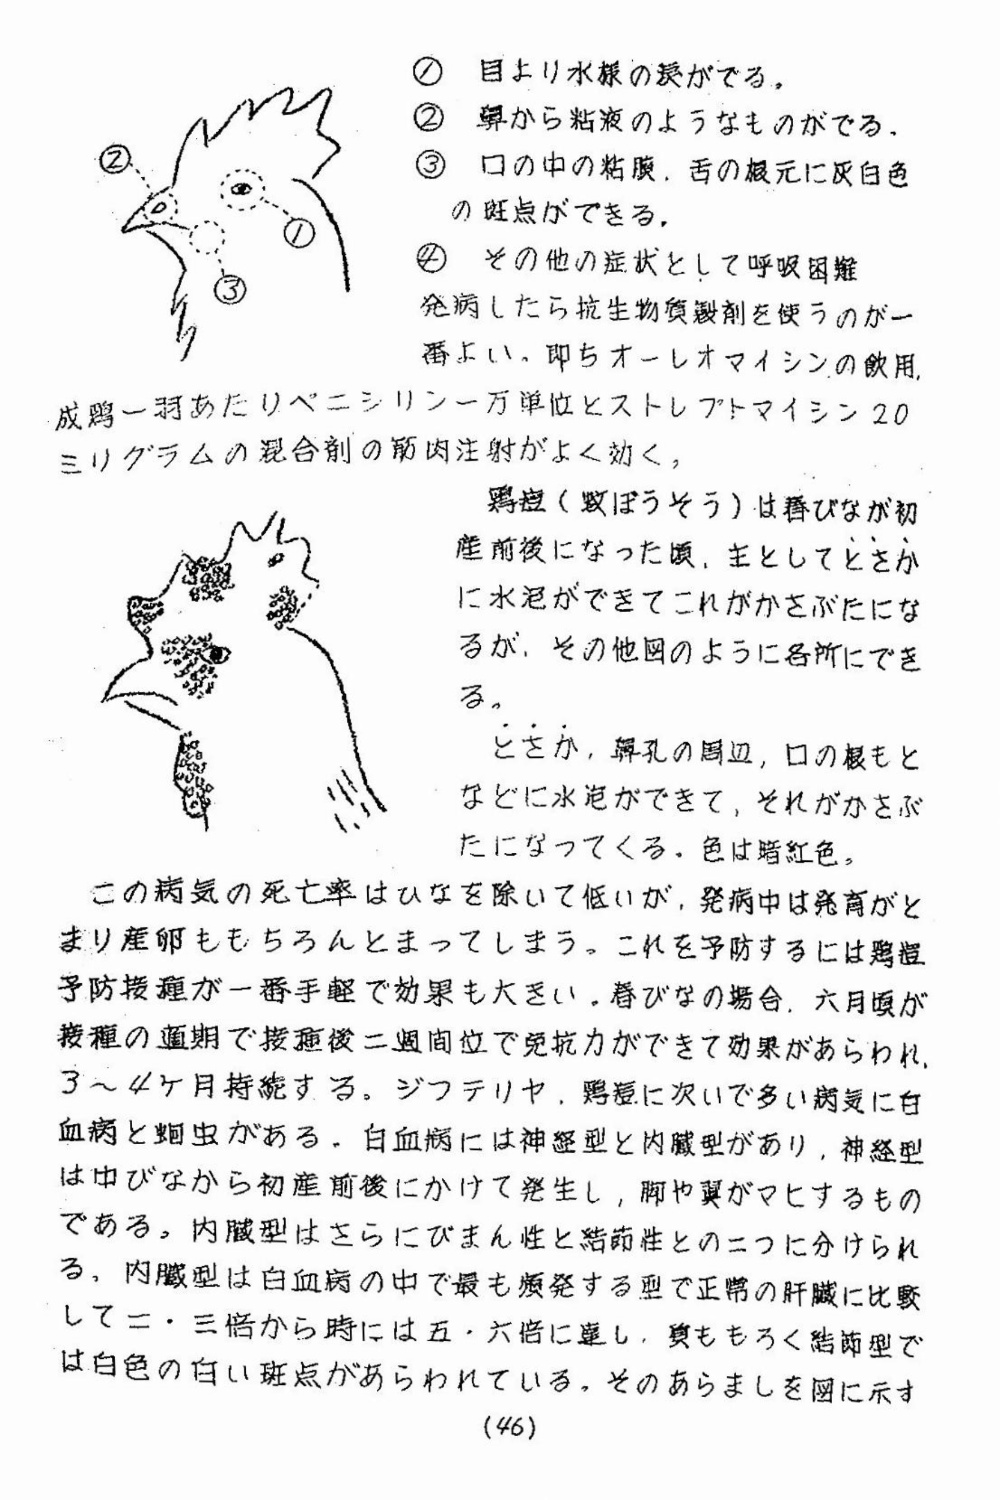 ① 目より水様の涙がでる。
② 鼻から粘液のようなものがでる.
③ 口の中の粘膜.舌の根元に灰白色
の斑点ができる.
④ その他の症状として呼吸困難
発病したら抗生物質製剤を使うのが一
番よい。即ちオーレオマイシンの飲用.
成鶏一羽あたりペニシリン一万単位とストレプトマイシン20
ミリグラムの混合剤の筋肉注射がよく効く。
鶏痘(蚊ぼうそう)は春びなが初
産前後になった頃.主としてとさか
に水泡ができてこれがかさぶたにな
るが.その他図のように各所にでき
る。
とさか,鼻孔の周辺,口の根もと
などに水泡ができて,それがかさぶ
たになってくる.色は暗紅色。
この病気の死亡率はひなを除いて低いが,発病中は発育がと
まり産卵ももちろんとまってしまう。これを予防するには鶏痘
予防接種が一番手軽で効果も大きい.春びなの場合.六月頃が
接種の適期で接種後二週間位で免抗力ができて効果があらわれ.
3~4ケ月持続する。ジフテリヤ.鶏痘に次いで多い病気に白
血病と蛔虫がある.白血病には神経型と内臓型があり,神経型
は中びなから初産前後にかけて発生し,脚や翼がマヒするもの
である。内臓型はさらにびまん性と結節性との二つに分けられ
る.内臓型は白血病の中で最も頻発する型で正常の肝臓に比較
して二・三倍から時には五・六倍に達し.質ももろく結節型で
は白色の白い斑点があらわれている。そのあらましを図に示す
(46)
②
①
③